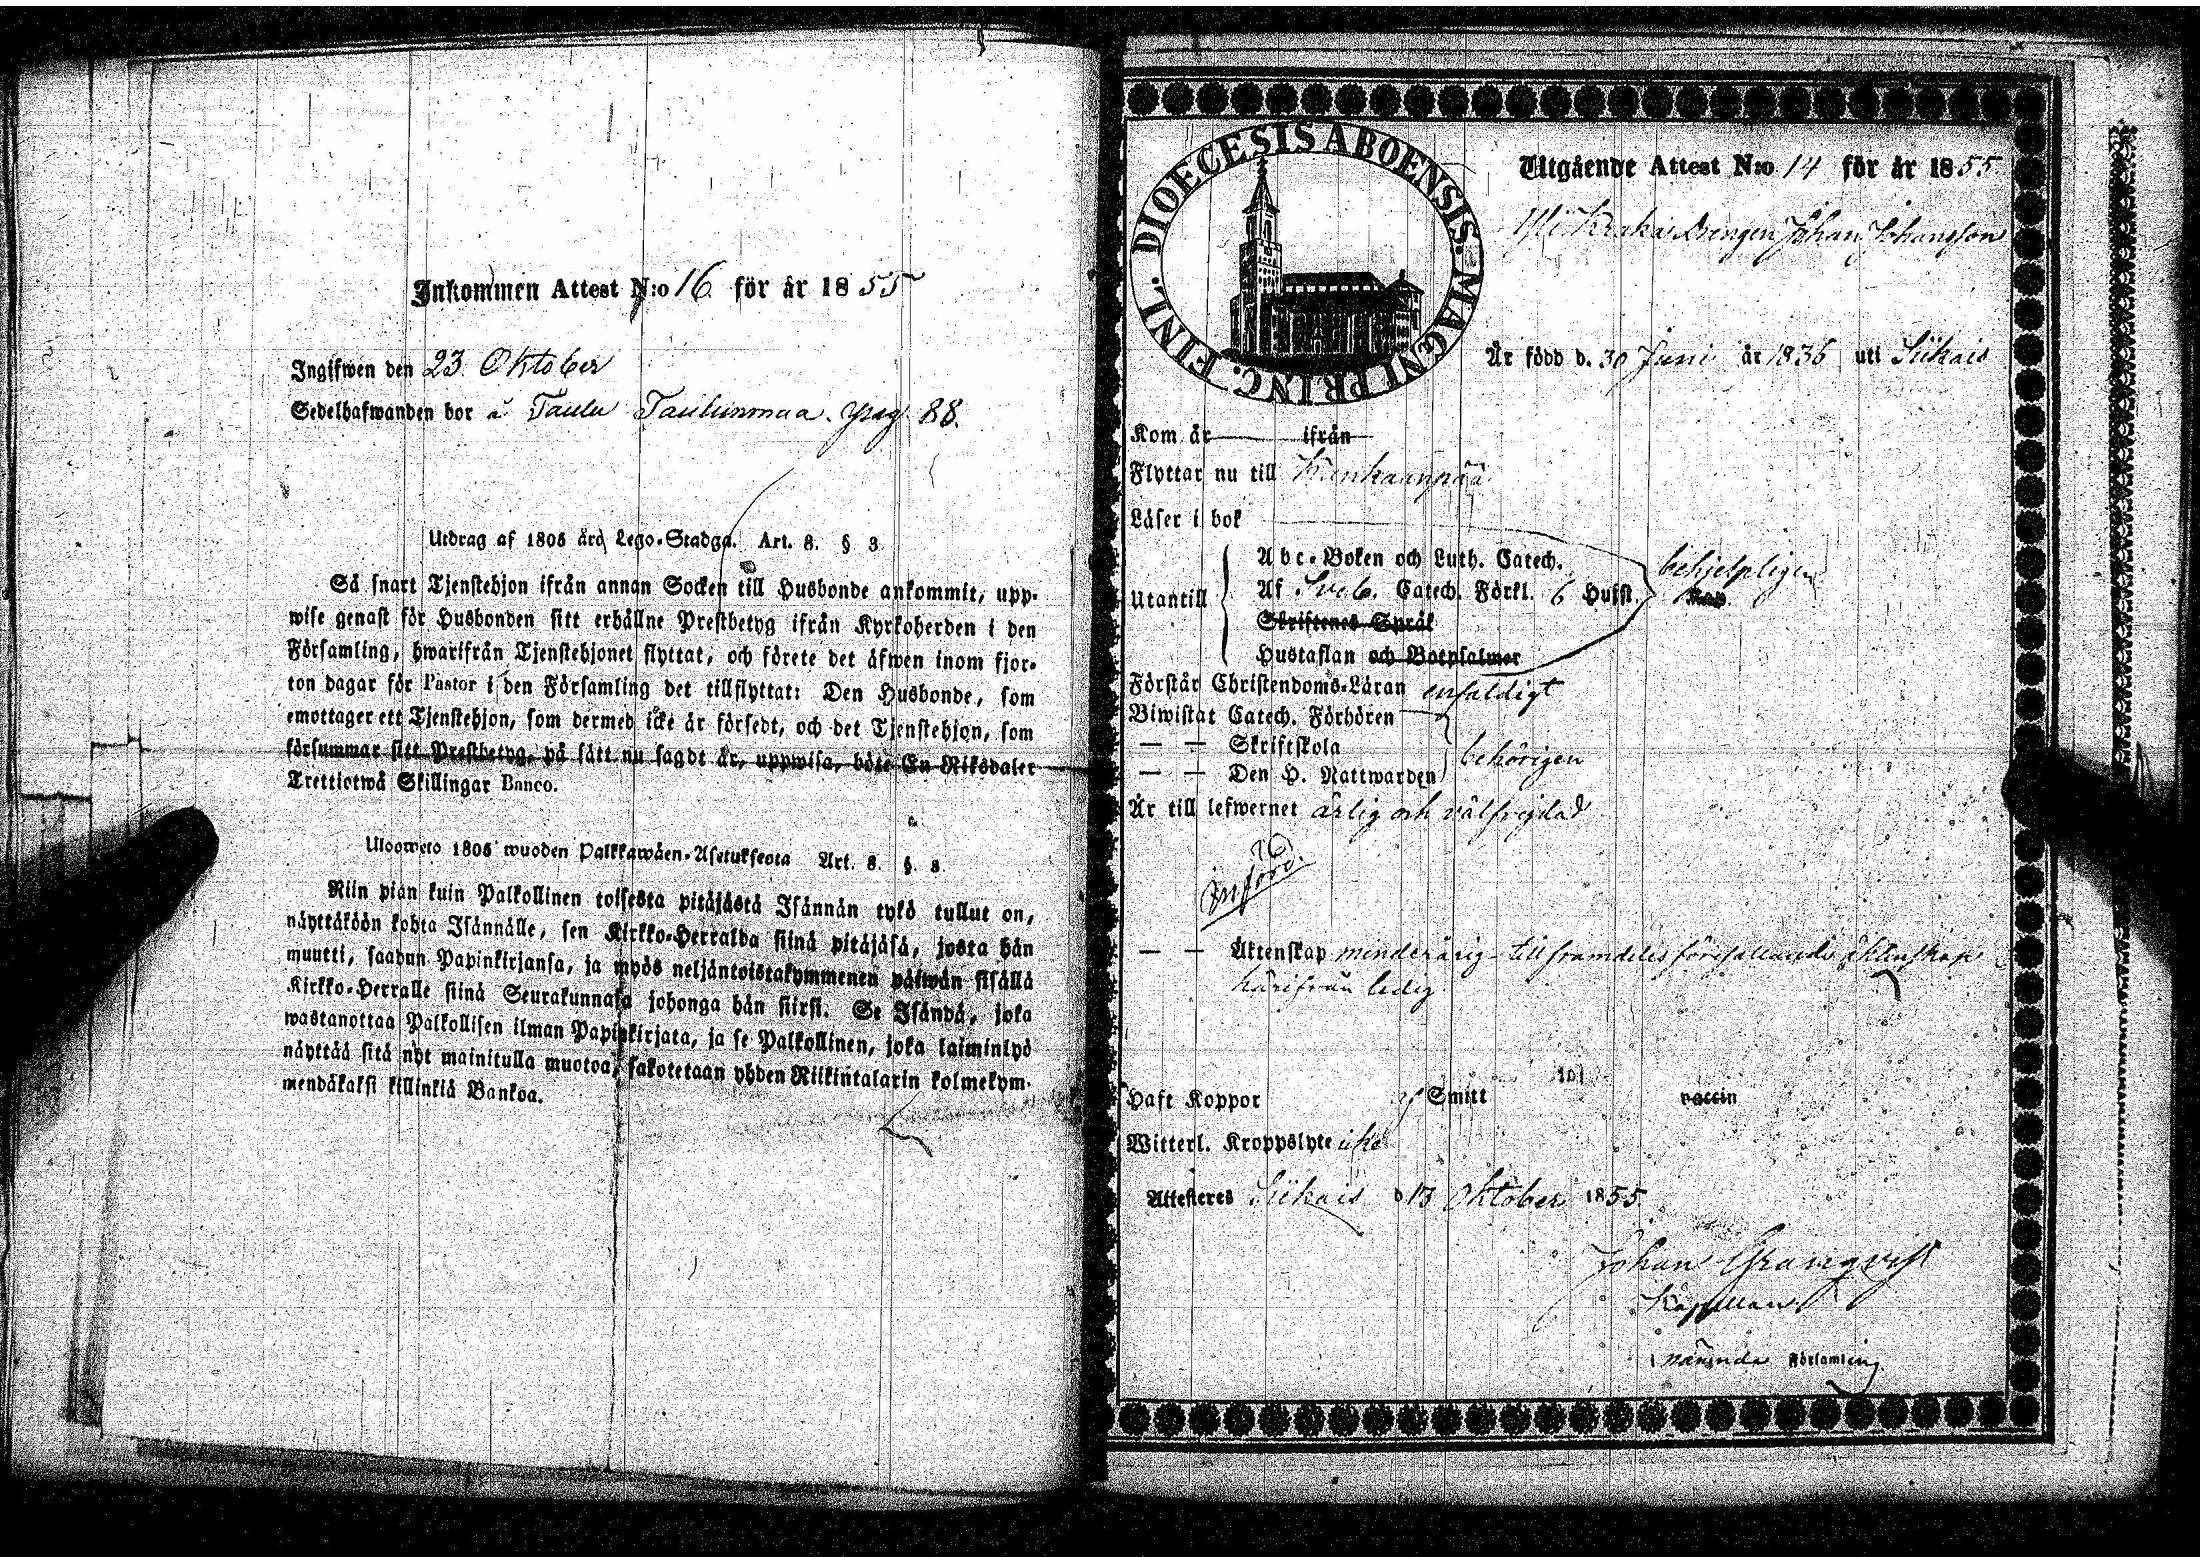 Inkommen Attest N:o 16 för år 1855
Ingifwen den 23. Oktober
Sedelhafwanden bor å Taulu Taulunmaa. pag. 88.
Utdrag af 1805 års Lego-Stadga. Art. 8. § 3
Så snart Tjenstehjon ifrån annan Socken till Husbonde ankommit, upp-
wise genast för Husbonden sitt erhållne Prestbetyg ifrån Kyrkoherden i den
Församling, hwarifrån Tjenstehjonet flyttat, och förete det äfwen inom fjor-
ton dagar för Pastor i den Församling det tillflyttat: Den Husbonde, som
emottager ett Tjenstehjon, som dermed icke är försedt, och det Tjenstehjon, som
försummar sitt Prestbetyg, på sätt nu sagdt är, uppwisa, böte En Riksdaler
Trettiotwå Skillingar Banco.
Ulosweto 1805 wuoden Palkkawäen-Asetuksesta Art. 8. §. 3
Niin pian kuin Palkollinen toisesta pitäjästä Isännän tykö tullut on,
näyttäköön kohta Isännälle, sen Kirkko-Herralda siinä pitäjäsä, josta hän
muutti, saadun Papinkirjansa, ja myös neljäntoistakymmenen päiwän sisällä
Kirkko-Herralle siinä Seurakunnasa johonga hän siirsi. Se Isändä, joka
wastanottaa Palkollisen ilman Papinkirjata, ja se Palkollinen, joka laiminlyö
näyttää sitä nyt mainitulla muotoa, sakotetaan yhden Riikintalarin kolmekym-
mendäkaksi killinkiä Bankoa.
DIOECESIS ABOENSIS. MAGNI PRINC. FINL.
Utgående Attest N:o 14 för år 1855
Drengen Johan Johansson
Är född d. 30 Juni år 1836 uti Siikais
Kom år ifrån
Flyttar nu till Kankaanpää
Läser i bok
Abc-Boken och Luth. Catech.
Utantill Af Sveb. Catech. Förkl. 6 Hufst. behjelpligen
Skriftenes Språk
Hustaflan och Botpsalmer
Förstår Christendoms-Läran enfaldigt
Biwistat Catech. Förhören
— — Skriftskola behörigen
— — Den H. Nattwarden
Är till lefwernet ärlig och välfrejdad
Införd.
— — Äktenskap minderårig till framdeles förefallande Äktenskap
härifrån ledig
Haft Koppor Smitt vaccin
Witterl. Kroppslyte icke
Attesteres Siikais d 13 Oktober 1855.
Johan Granqvist
Kapellan
i nämnde Församling